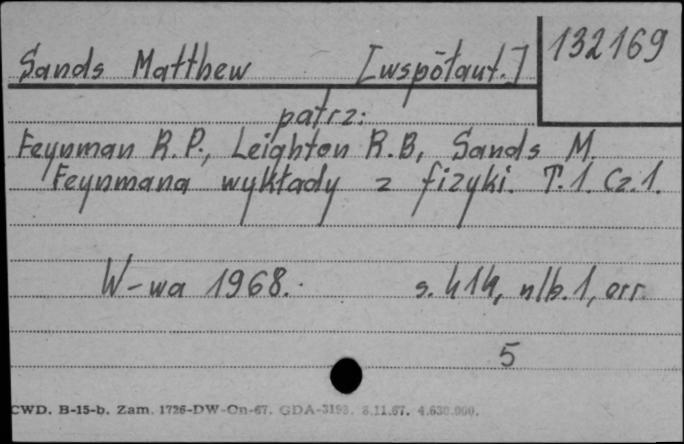 132169
Sands Matthew [współaut.]
patrz:
Feynman R.P., Leighton R.B, Sands M.
Feynmana wykłady z fizyki. T.1. Cz.1.
W-wa 1968. s. 414, nlb. 1, err.
5
CWD. B-15-b. Zam. 1726-DW-Cn-67. GDA-3193. 8.11.67. 4.630.000.